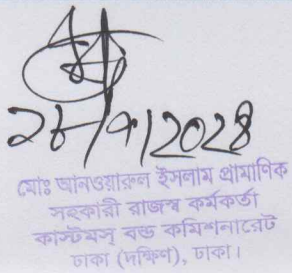 ২৮/৭/২০২৪
মোঃ আনওয়ারুল ইসলাম প্রামাণিক
সহকারী রাজস্ব কর্মকর্তা
কাস্টমস্ বন্ড কমিশনারেট
ঢাকা (দক্ষিণ), ঢাকা।